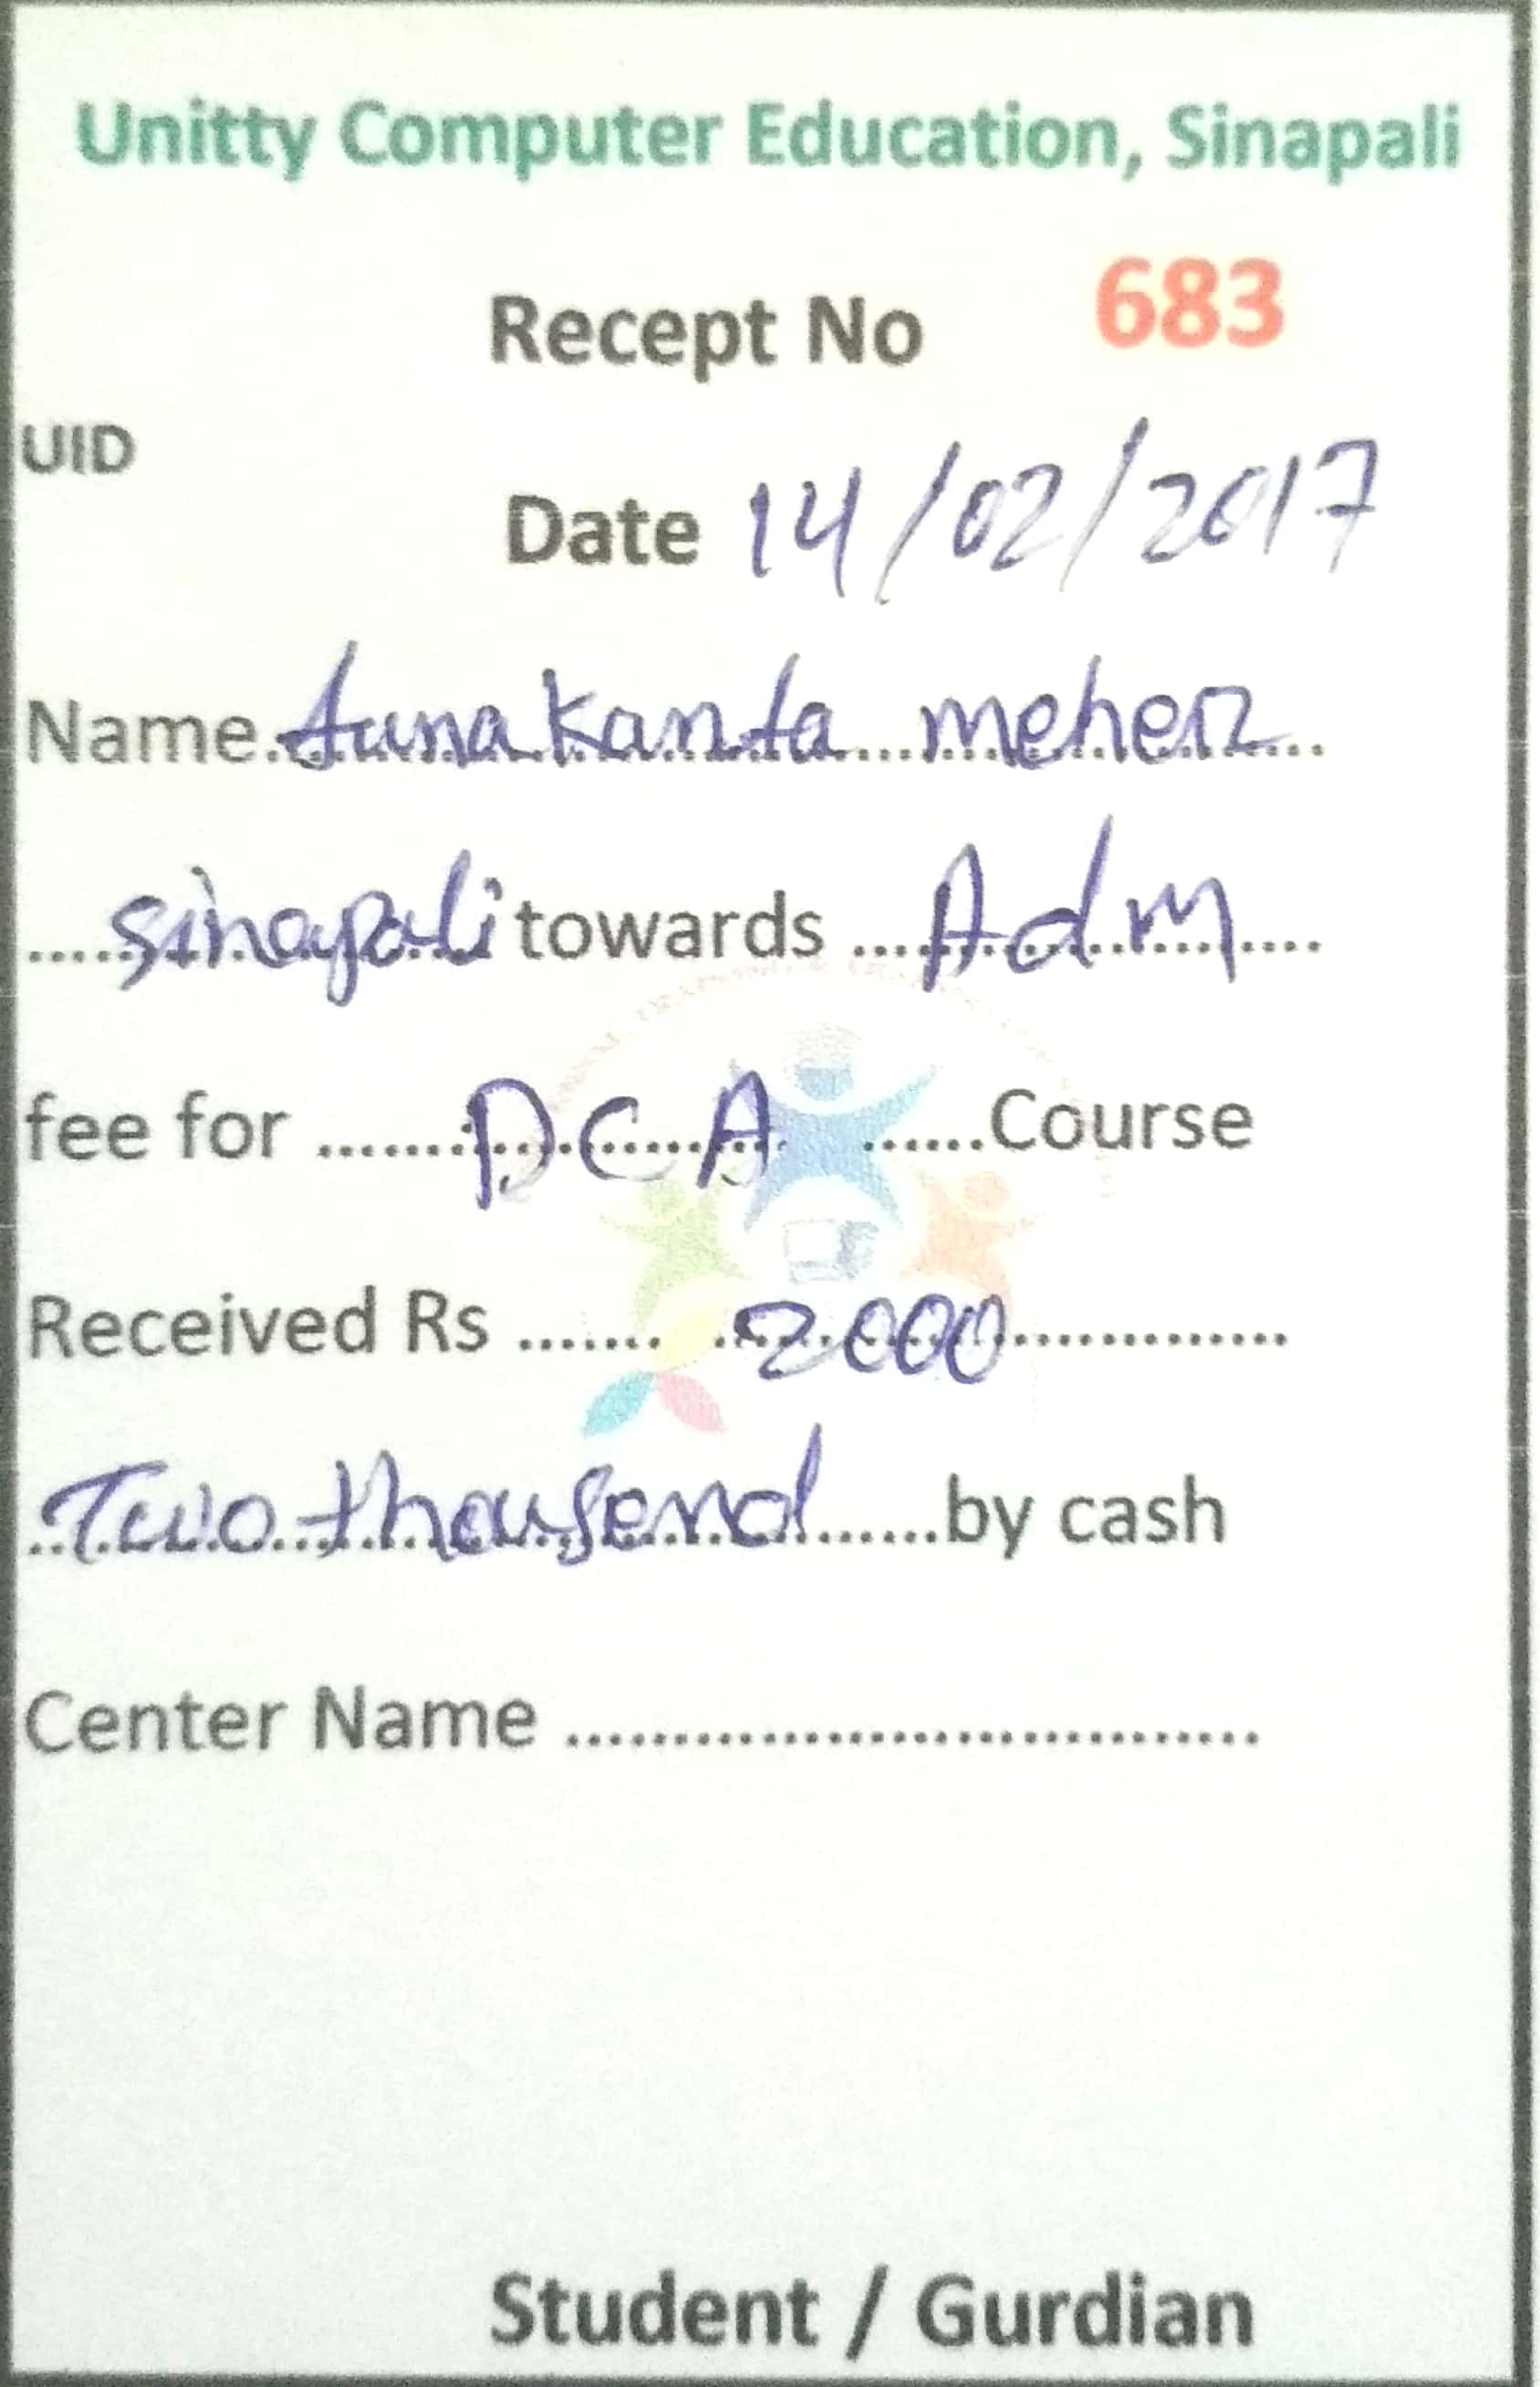 Unitty Computer Education, Sinapali
Recept No 683
UID
Date 14/02/2017
Name.tunakanta meher...
....sinapali towards ...Adm....
fee for .......DCA ......Course
Received Rs ....... 2000..............
Two thousend......by cash
Center Name ................................
Student / Gurdian